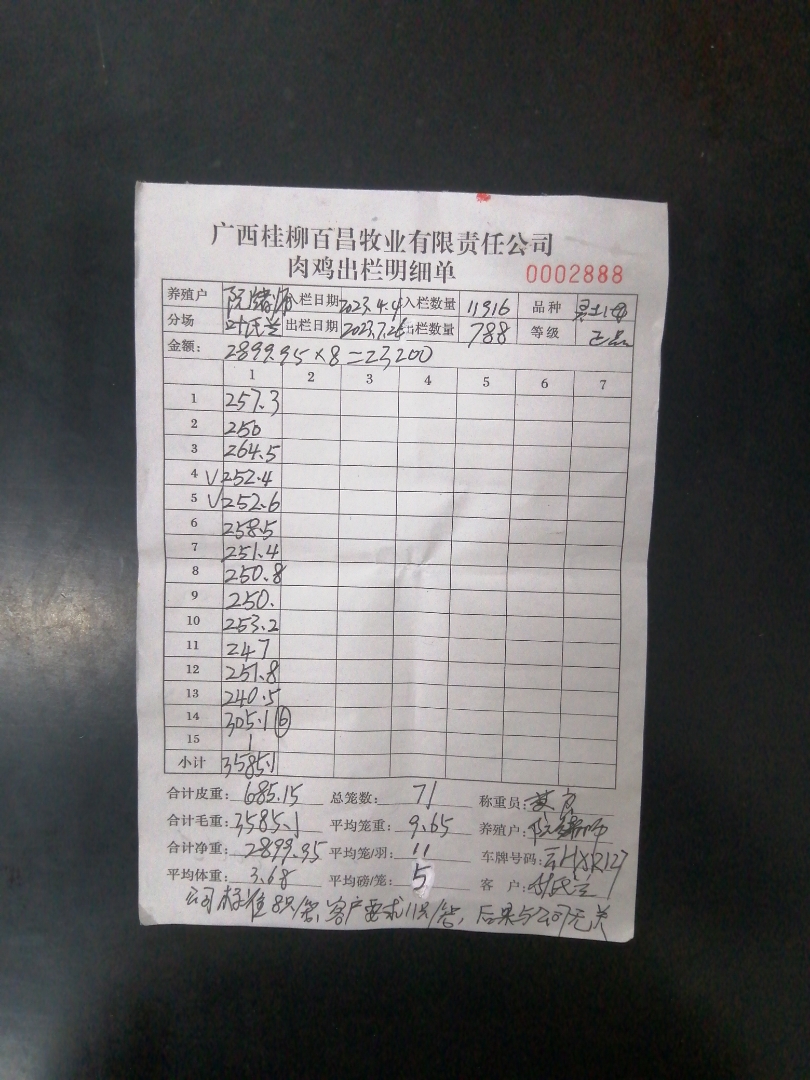 广西桂柳百昌牧业有限责任公司
肉鸡出栏明细单 0002888
养殖户 阮绪师 入栏日期 2023.4.4 入栏数量 11916 品种
分场 叶氏兰 出栏日期 2023.7.26 出栏数量 788 等级 正品
金额: 2899.95×8=23200
1 2 3 4 5 6 7
1 257.3
2 250
3 264.5
4 √252.4
5 √252.6
6 258.5
7 251.4
8 250.8
9 250.
10 253.2
11 247
12 251.8
13 240.5
14 305.1 ⑥
15 1
小计 3585.1
合计皮重: 685.15 总笼数: 71 称重员:
合计毛重: 3585.1 平均笼重: 9.65 养殖户: 阮绪师
合计净重: 2899.95 平均笼/羽: 11 车牌号码: 云HXR127
平均体重: 3.68 平均磅/笼: 5 客户: 叶氏兰
公司标准8只/笼,客户要求11只/笼,后果与公司无关